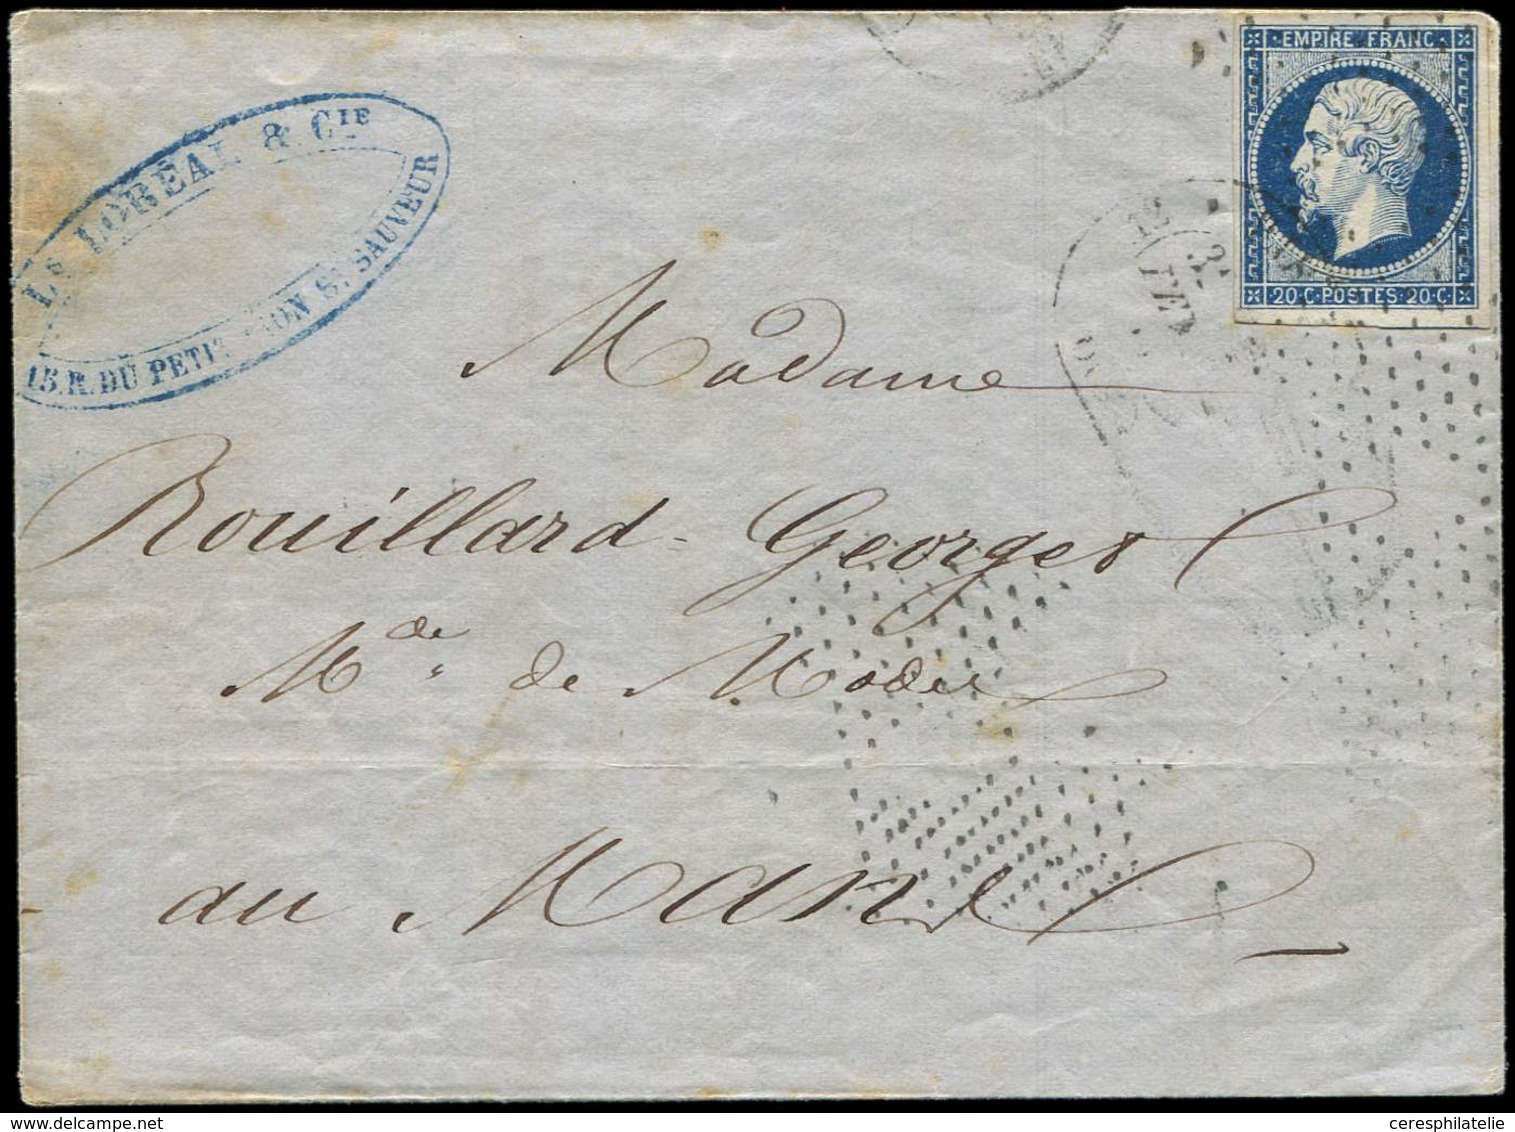 Ls LORÉAL & CIE
15. R. DU PETIT LION St SAUVEUR
EMPIRE FRANC
20 C · POSTES · 20 C
Madame
Rouillard-Georges
Mde de Modes
au Mans
ceresphilatelie